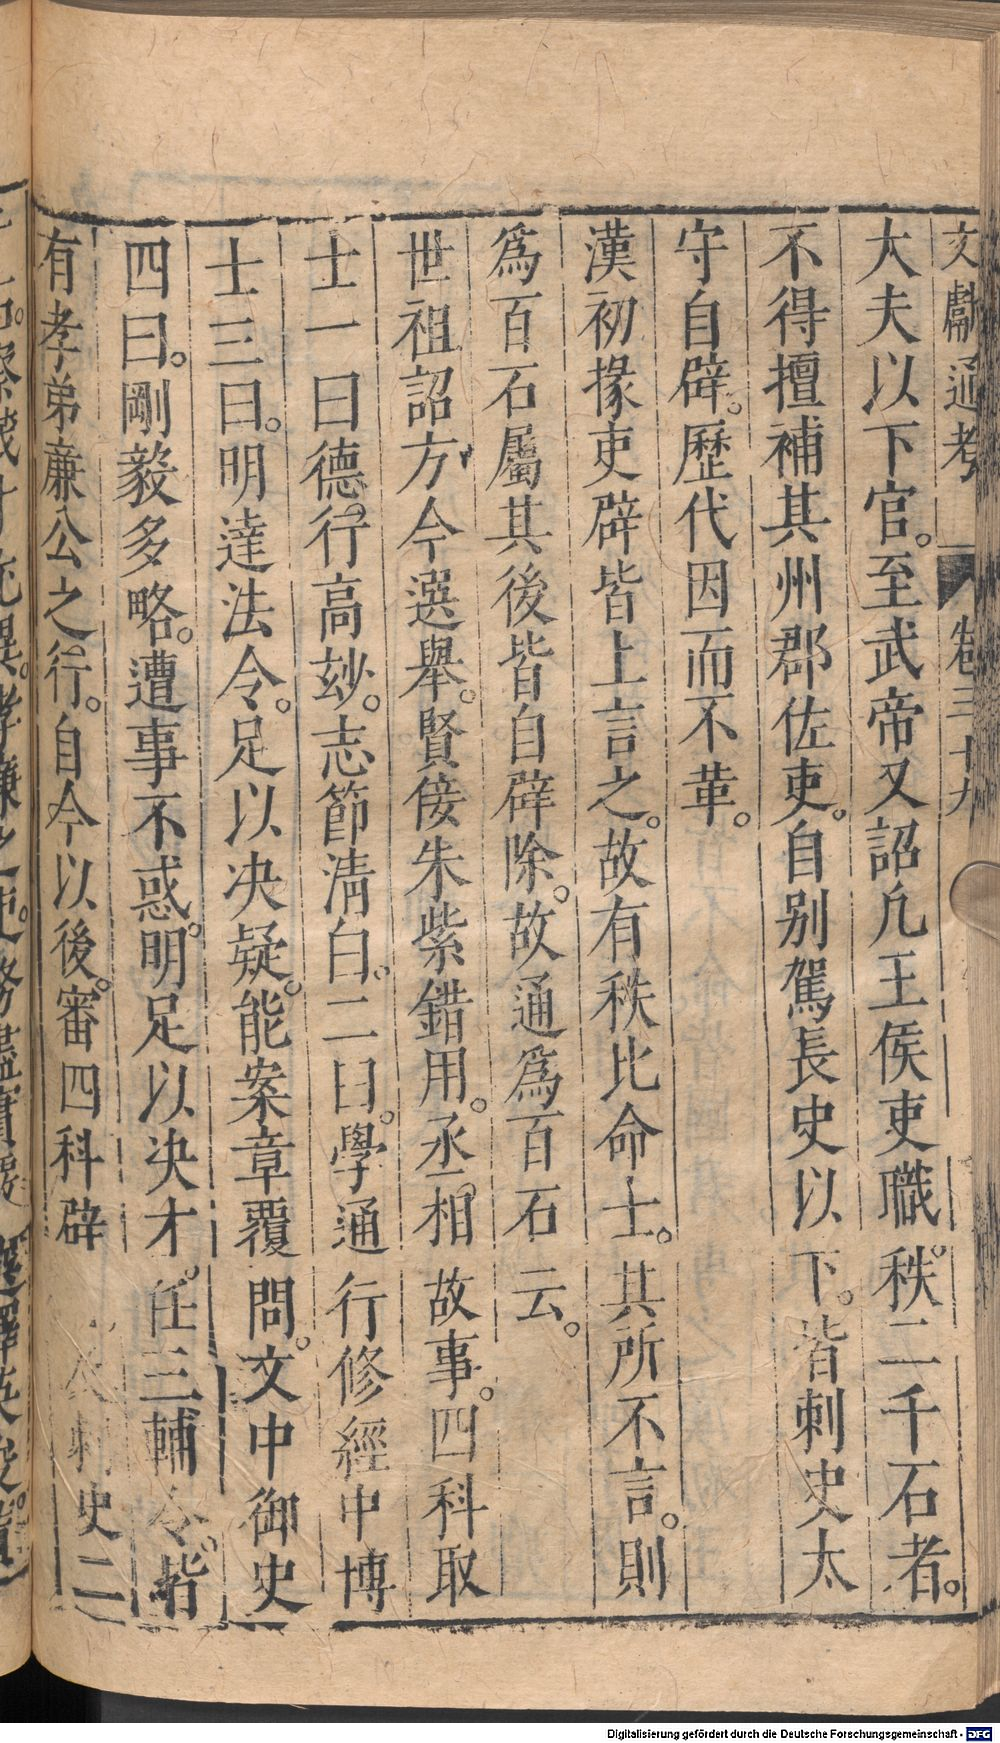 文獻通考 卷三十九
大夫以下官。至武帝又詔凢王侯吏職秩二千石者。
不得擅補其州郡佐吏。自别駕長史以下。皆刺史太
守自辟。歷代因而不革。
漢初掾吏辟皆上言之。故有秩比命士。其所不言。則
爲百石屬其後皆自辟除。故通爲百石云。
世祖詔方今選舉。賢佞朱紫錯用。丞相故事。四科取
士一曰德。行高玅。志節淸白。二曰。學通行修經中博
士三曰。明達法令。足以决疑。能案章覆問。文中御史
四曰。剛毅多略。遭事不惑。明足以决才。任三輔令。皆
有孝弟亷公之行。自今以後。審四科辟 刺史二
Digitalisierung gefördert durch die Deutsche Forschungsgemeinschaft - DFG